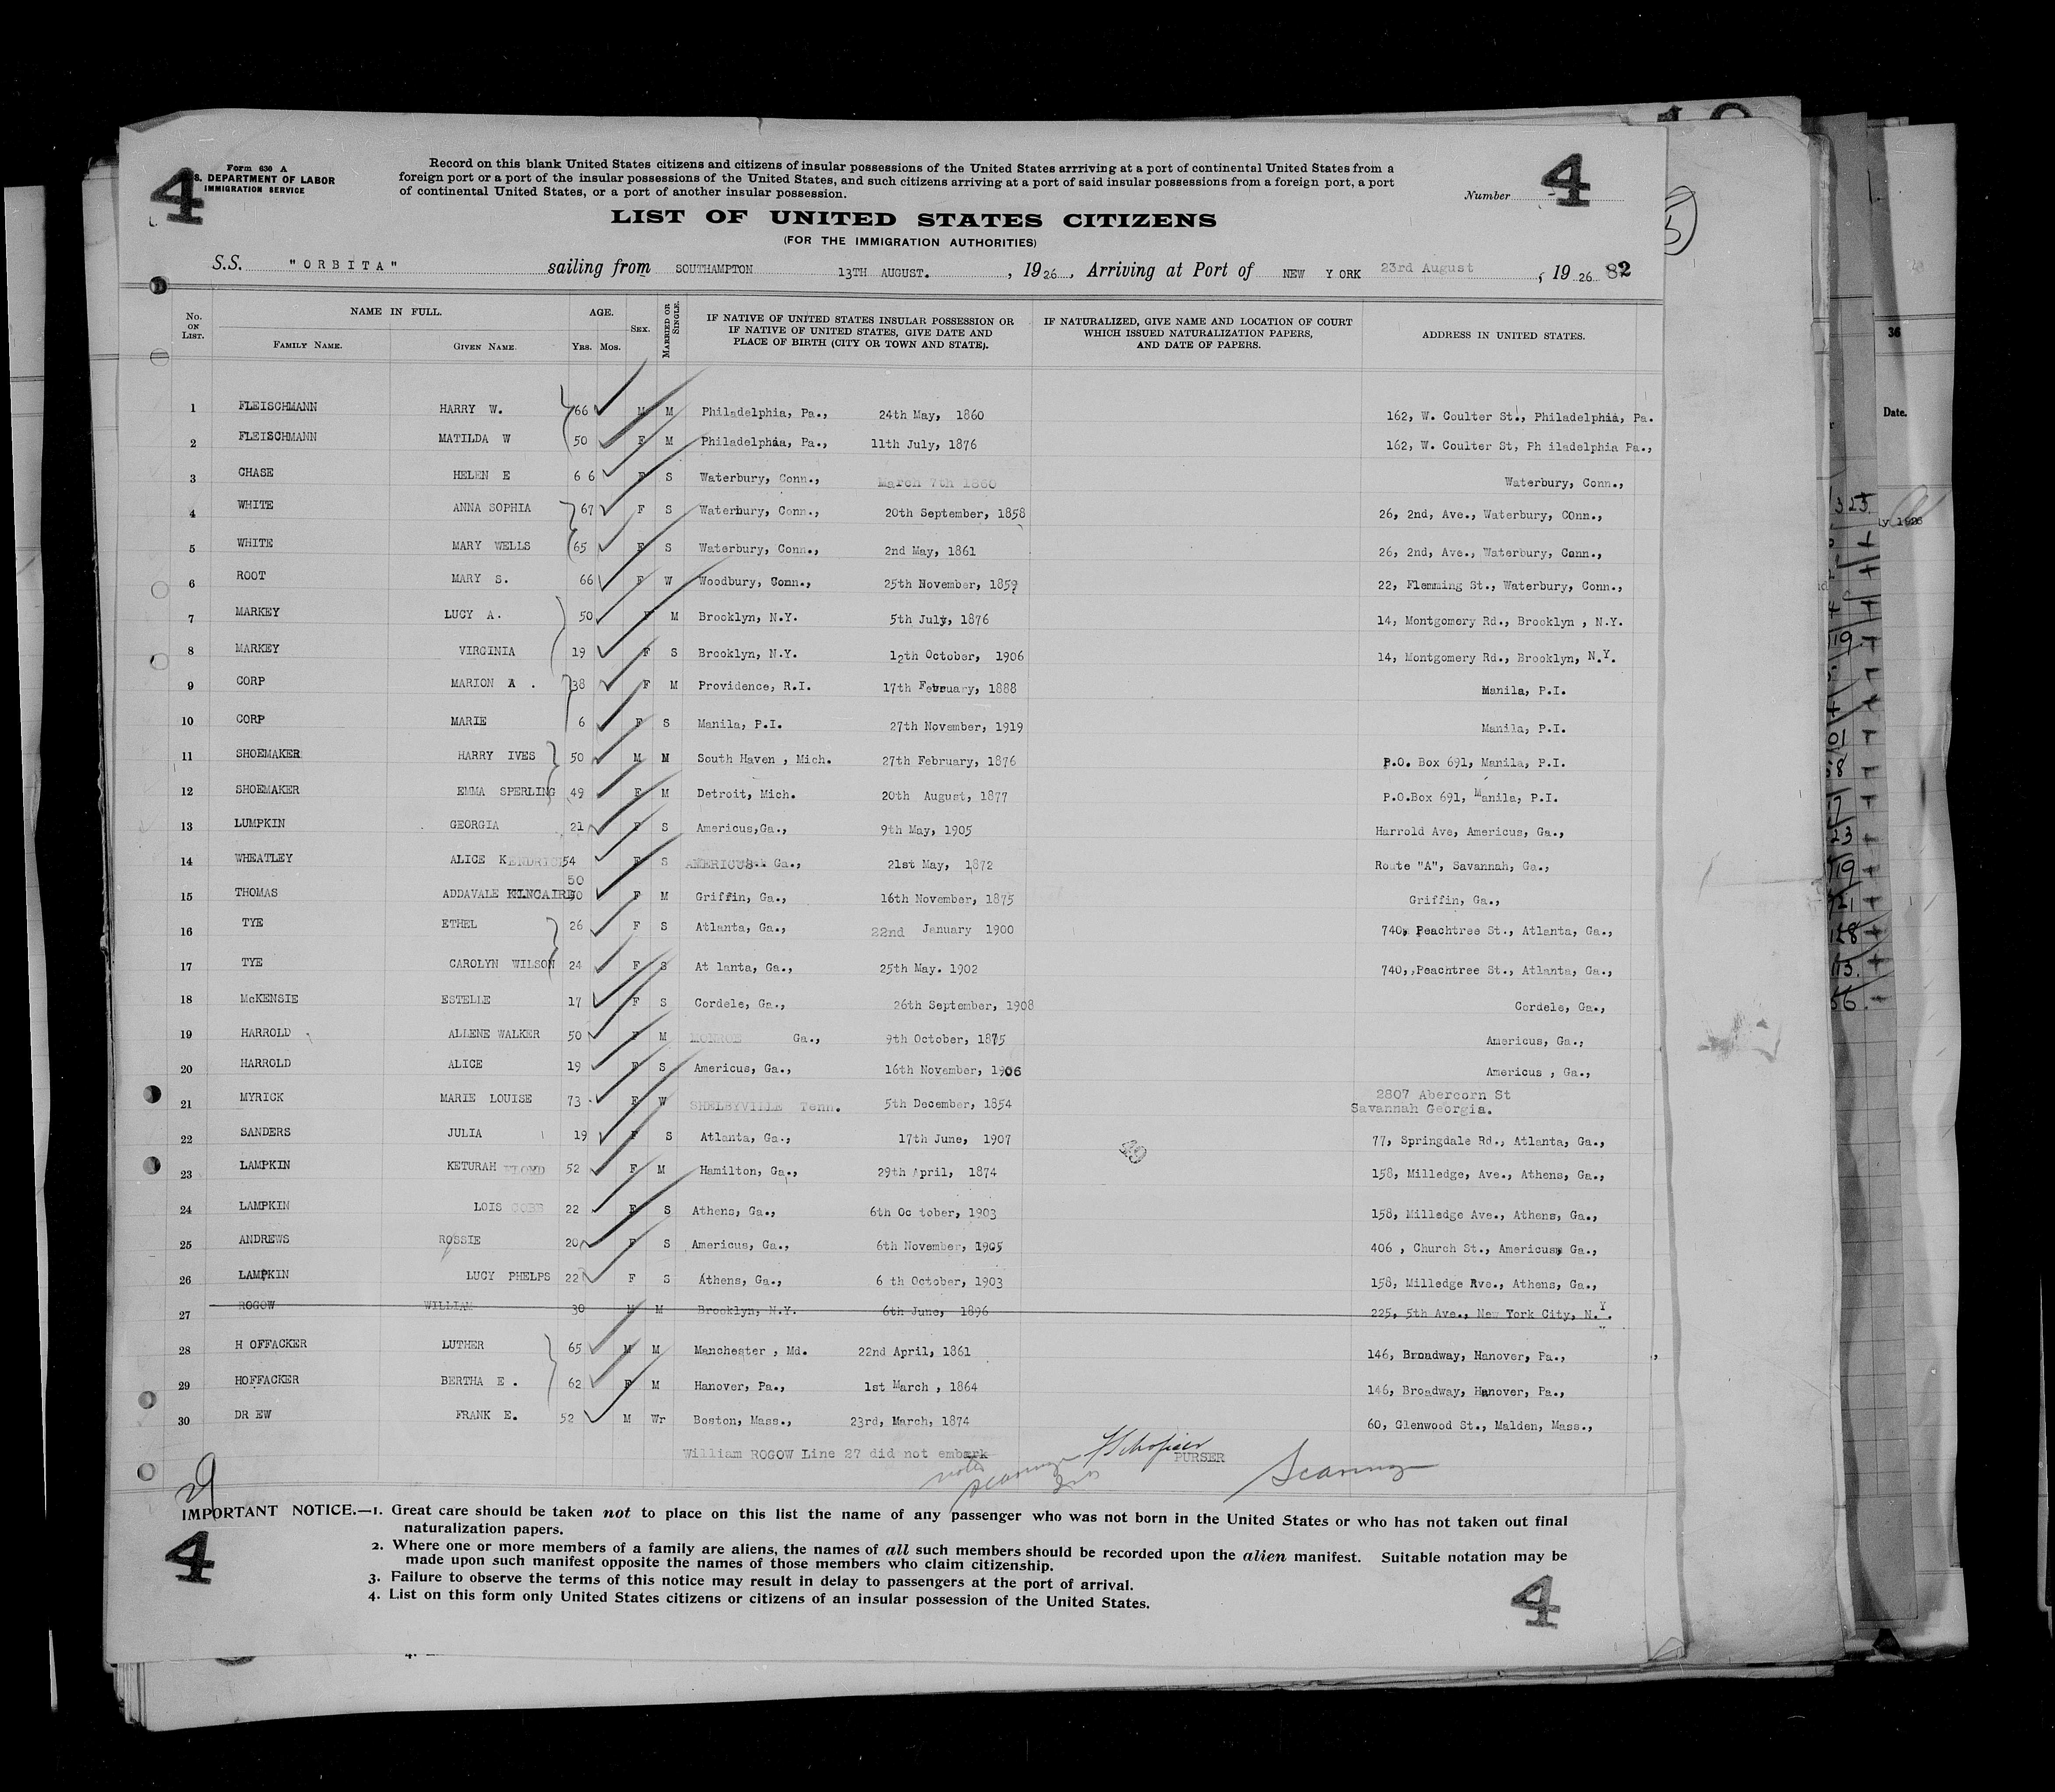 4
Form 630 A
S. DEPARTMENT OF LABOR
IMMIGRATION SERVICE
Record on this blank United States citizens and citizens of insular possessions of the United States arrriving at a port of continental United States from a
foreign port or a port of the insular possessions of the United States, and such citizens arriving at a port of said insular possessions from a foreign port, a port
of continental United States, or a port of another insular possession.
Number 4
LIST OF UNITED STATES CITIZENS
(FOR THE IMMIGRATION AUTHORITIES)
S.S. "ORBITA" sailing from SOUTHAMPTON 13TH AUGUST. , 1926 , Arriving at Port of NEW Y ORK 23rd August , 1926 82
No. ON LIST. NAME IN FULL. FAMILY NAME. GIVEN NAME. AGE. YRS. MOS. SEX. MARRIED OR SINGLE. IF NATIVE OF UNITED STATES INSULAR POSSESSION OR IF NATIVE OF UNITED STATES, GIVE DATE AND PLACE OF BIRTH (CITY OR TOWN AND STATE). IF NATURALIZED, GIVE NAME AND LOCATION OF COURT WHICH ISSUED NATURALIZATION PAPERS, AND DATE OF PAPERS. ADDRESS IN UNITED STATES.
1 FLEISCHMANN HARRY W. 66 M M Philadelphia, Pa., 24th May, 1860 162, W. Coulter St., Philadelphia, Pa.
2 FLEISCHMANN MATILDA W 50 F M Philadelphia, Pa., 11th July, 1876 162, W. Coulter St, Ph iladelphia Pa.,
3 CHASE HELEN E 6 6 F S Waterbury, Conn., March 7th 1860 Waterbury, Conn.,
4 WHITE ANNA SOPHIA 67 F S Waterbury, Conn., 20th September, 1858 26, 2nd, Ave., Waterbury, COnn.,
5 WHITE MARY WELLS 65 F S Waterbury, Conn., 2nd May, 1861 26, 2nd, Ave., Waterbury, Conn.,
6 ROOT MARY S. 66 F W Woodbury, Conn., 25th November, 1859 22, Flemming St., Waterbury, Conn.,
7 MARKEY LUCY A. 50 F M Brooklyn, N.Y. 5th July, 1876 14, Montgomery Rd., Brooklyn , N.Y.
8 MARKEY VIRGINIA 19 F S Brooklyn, N.Y. 12th October, 1906 14, Montgomery Rd., Brooklyn, N.Y.
9 CORP MARION A . 38 F M Providence, R.I. 17th February, 1888 Manila, P.I.
10 CORP MARIE 6 F S Manila, P.I. 27th November, 1919 Manila, P.I.
11 SHOEMAKER HARRY IVES 50 M M South Haven , Mich. 27th February, 1876 P.O. Box 691, Manila, P.I.
12 SHOEMAKER EMMA SPERLING 49 F M Detroit, Mich. 20th August, 1877 P.O.Box 691, Manila, P.I.
13 LUMPKIN GEORGIA 21 F S Americus,Ga., 9th May, 1905 Harrold Ave, Americus, Ga.,
14 WHEATLEY ALICE KENDRICK 54 F S AMERICUS Ga., 21st May, 1872 Route "A", Savannah, Ga.,
50
15 THOMAS ADDAVALE KINCAIRD F M Griffin, Ga., 16th November, 1875 Griffin, Ga.,
16 TYE ETHEL 26 F S Atlanta, Ga., 22nd January 1900 740, Peachtree St., Atlanta, Ga.,
17 TYE CAROLYN WILSON 24 F S At lanta, Ga., 25th May. 1902 740,,Peachtree St., Atlanta, Ga.,
18 McKENSIE ESTELLE 17 F S Cordele, Ga., 26th September, 1908 Cordele, Ga.,
19 HARROLD ALLENE WALKER 50 F M MONROE Ga., 9th October, 1875 Americus, Ga.,
20 HARROLD ALICE 19 F S Americus, Ga., 16th November, 1906 Americus , Ga.,
21 MYRICK MARIE LOUISE 73 F W SHELBYVILLE Tenn. 5th December, 1854 2807 Abercorn St
Savannah Georgia.
22 SANDERS JULIA 19 F S Atlanta, Ga., 17th June, 1907 77, Springdale Rd., Atlanta, Ga.,
23 LAMPKIN KETURAH 52 F M Hamilton, Ga., 29th April, 1874 158, Milledge, Ave., Athens, Ga.,
24 LAMPKIN LOIS COBB 22 F S Athens, Ga., 6th Oc tober, 1903 158, Milledge Ave., Athens, Ga.,
25 ANDREWS ROSSIE 20 F S Americus, Ga., 6th November, 1905 406 , Church St., Americus, Ga.,
26 LAMPKIN LUCY PHELPS 22 F S Athens, Ga., 6 th October, 1903 158, Milledge Ave., Athens, Ga.,
27 ROGOW WILLIAM 30 M M Brooklyn, N.Y. 6th June, 1896 225, 5th Ave., New York City, N.Y.
28 H OFFACKER LUTHER 65 M M Manchester , Md. 22nd April, 1861 146, Broadway, Hanover, Pa.,
29 HOFFACKER BERTHA E . 62 F M Hanover, Pa., 1st March , 1864 146, Broadway, Hanover, Pa.,
30 DR EW FRANK E. 52 M Wr Boston, Mass., 23rd, March, 1874 60, Glenwood St., Malden, Mass.,
William ROGOW Line 27 did not embark
PURSER
IMPORTANT NOTICE.—1. Great care should be taken not to place on this list the name of any passenger who was not born in the United States or who has not taken out final
naturalization papers.
2. Where one or more members of a family are aliens, the names of all such members should be recorded upon the alien manifest. Suitable notation may be
made upon such manifest opposite the names of those members who claim citizenship.
3. Failure to observe the terms of this notice may result in delay to passengers at the port of arrival.
4. List on this form only United States citizens or citizens of an insular possession of the United States.
4
4
36
Date.